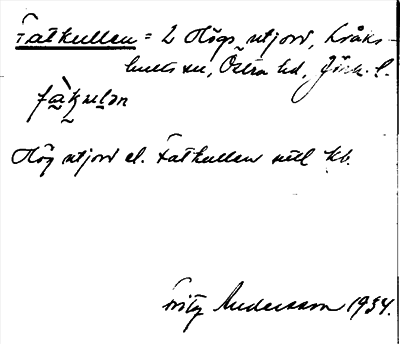 Fatkullen = L Högs utjord, Kråks-
hults sn, Östra hd, Jönk. l.
fàkulən
Hög utjord el. Fatkullen
Fritz Andersson 1934.